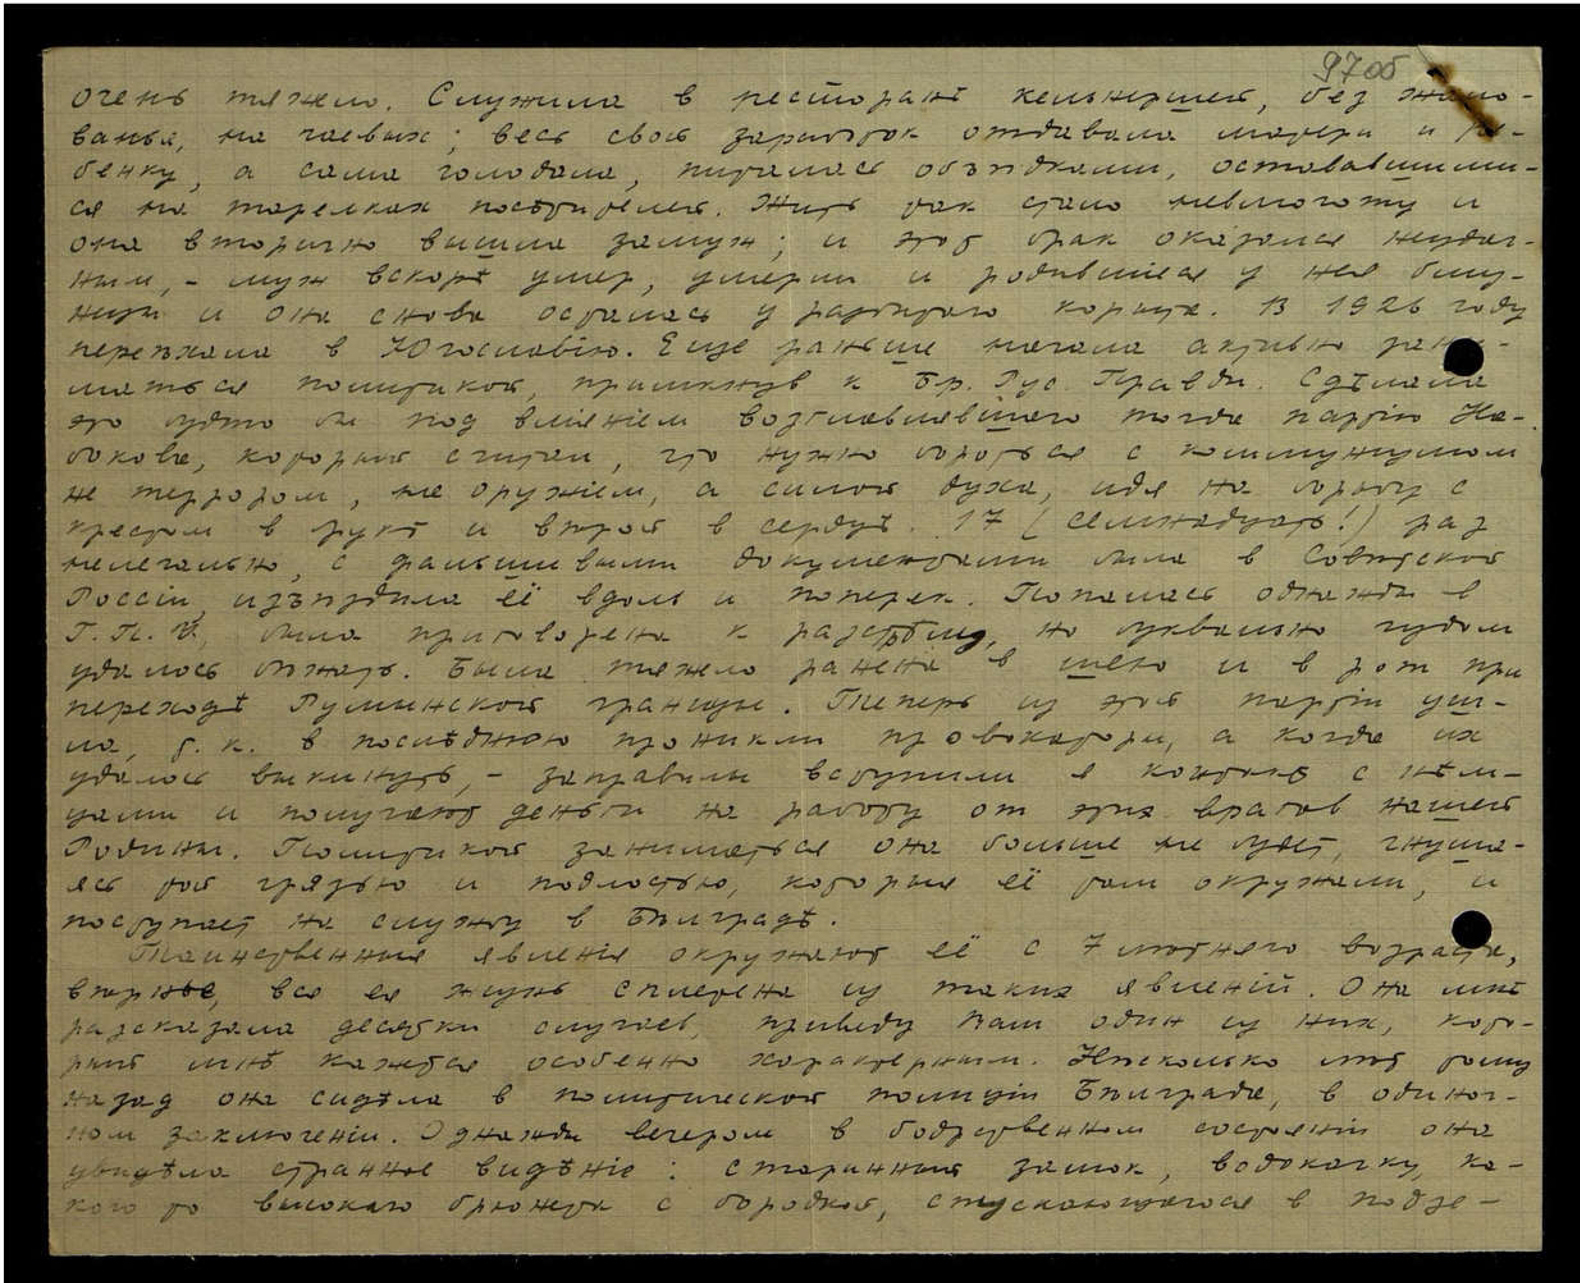 97об
очень тяжело. Служила в ресторанѣ кельнершей, без жало-
ванья, на чаевых; весь свой заработок отдавала матери и ре-
бенку, а сама голодала, питалась объѣдками, остававшими-
ся на тарелках посѣтителей. Жить так стало невмоготу и
она вторично вышла замуж; и этот брак оказался неудач-
ным, - муж вскорѣ умер, умерли и родившіеся у нея близ-
нецы и она снова осталась у разбитаго корыта. В 1926 году
переѣхала в Югославію. Еще раньше начала активно зани-
маться политикой, примкнув к Бр. Рус. Правды. Сдѣлала
это будто бы под вліянiем возглавлявшаго тогда партію На-
бокова, который считал, что нужно бороться с коммунизмом
не террором, не оружіем, а силой духа, идя на борьбу с
крестом в рукѣ и вѣрой в сердцѣ. 17 (семнадцать!) раз
нелегально, с фальшивыми документами была в Совѣтской
Россіи, изъѣздила её вдоль и поперек. Попалась однажды в
Г.П.У., была приговорена к разстрѣлу, но буквально чудом
удалось бѣжать. Была тяжело ранена в шею и в рот при
переходѣ Румынской границы. Теперь из этой партіи уш-
ла, т.к. в послѣднюю проникли провокаторы, а когда их
удалось выкинуть, - заправилы вступили в контакт с нѣм-
цами и получают деньги на работу от этих врагов нашей
Родины. Политикой заниматься она больше не будет, гнуша-
ясь той грязью и подлостью, которыя её там окружали, и
поступает на службу в Бѣлградѣ.
Таинственныя явленія окружают её с 7 лѣтняго возраста,
вѣрнѣе, вся ея жизнь сплетена из таких явленій. Она мнѣ
разсказала десятки случаев, приведу Вам один из них, кото-
рый мнѣ кажется особенно характерным. Нѣсколько лѣт тому
назад она сидѣла в политической полиціи Бѣлграда, в одиноч-
ном заключеніи. Однажды вечером в бодрственном состояніи она
увидѣла странное видѣніе: старинный замок, водокачку, ка-
кого то высокаго брюнета с бородкой, спускающагося в подзе-